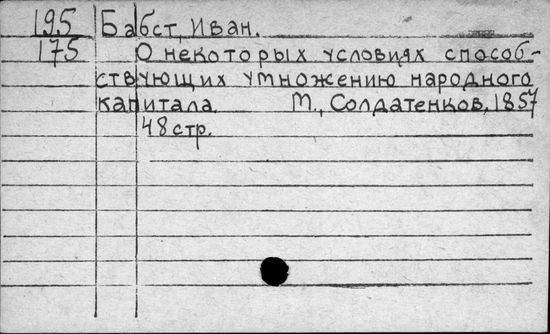 195 Бабст, Иван.
175 О некоторых условиях способ-
ствующих умножению народного
капитала. М., Солдатенков, 1857
48 стр.